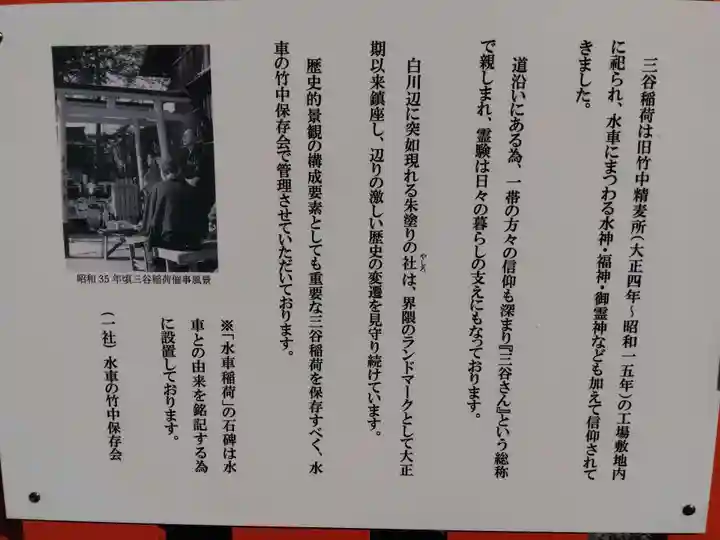 三谷稲荷は旧竹中精麦所(大正四年~昭和一五年)の工場敷地内
に祀られ、水車にまつわる水神・福神・御霊神なども加えて信仰されて
きました。
道沿いにある為、一帯の方々の信仰も深まり『三谷さん』という総称
で親しまれ、霊験は日々の暮らしの支えにもなっております。
白川辺に突如現れる朱塗りの社は、界隈のランドマークとして大正
やしろ
期以来鎮座し、辺りの激しい歴史の変遷を見守り続けています。
歴史的景観の構成要素としても重要な三谷稲荷を保存すべく、水
車の竹中保存会で管理させていただいております。
昭和35年頃三谷稲荷催事風景
※「水車稲荷」の石碑は水
車との由来を銘記する為
に設置しております。
(一社)水車の竹中保存会